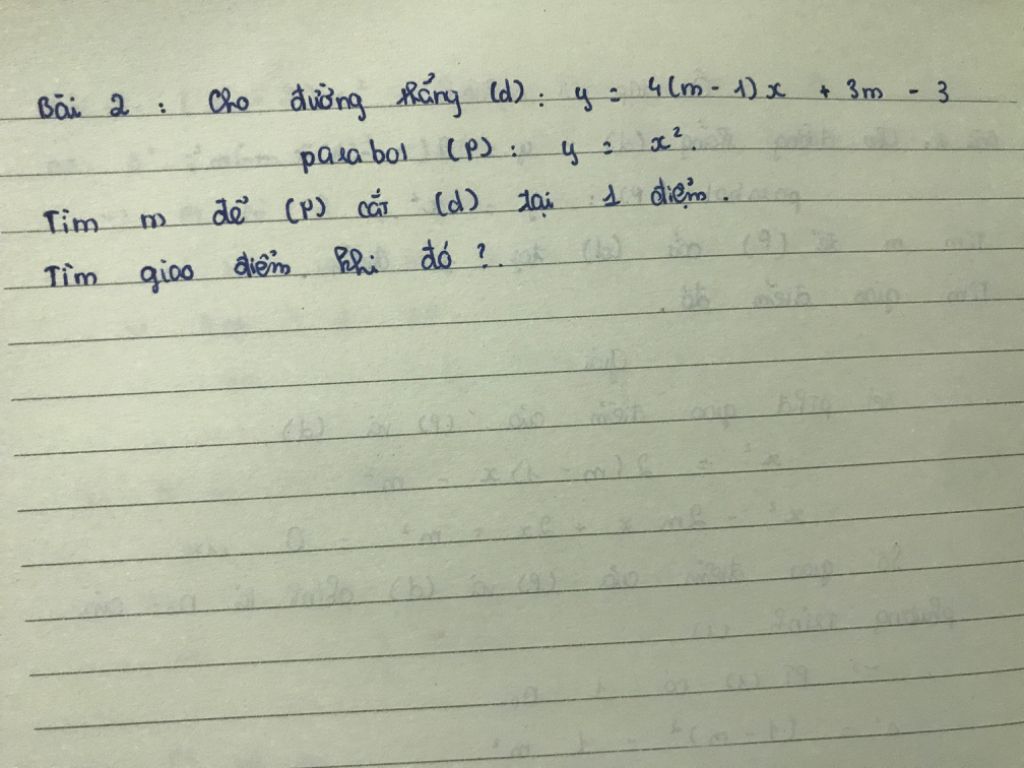 Bài 2 : Cho đường thẳng (d) : y = 4(m - 1)x + 3m - 3
parabol (P) : y = x².
Tìm m để (P) cắt (d) tại 1 điểm.
Tìm giao điểm khi đó ?.